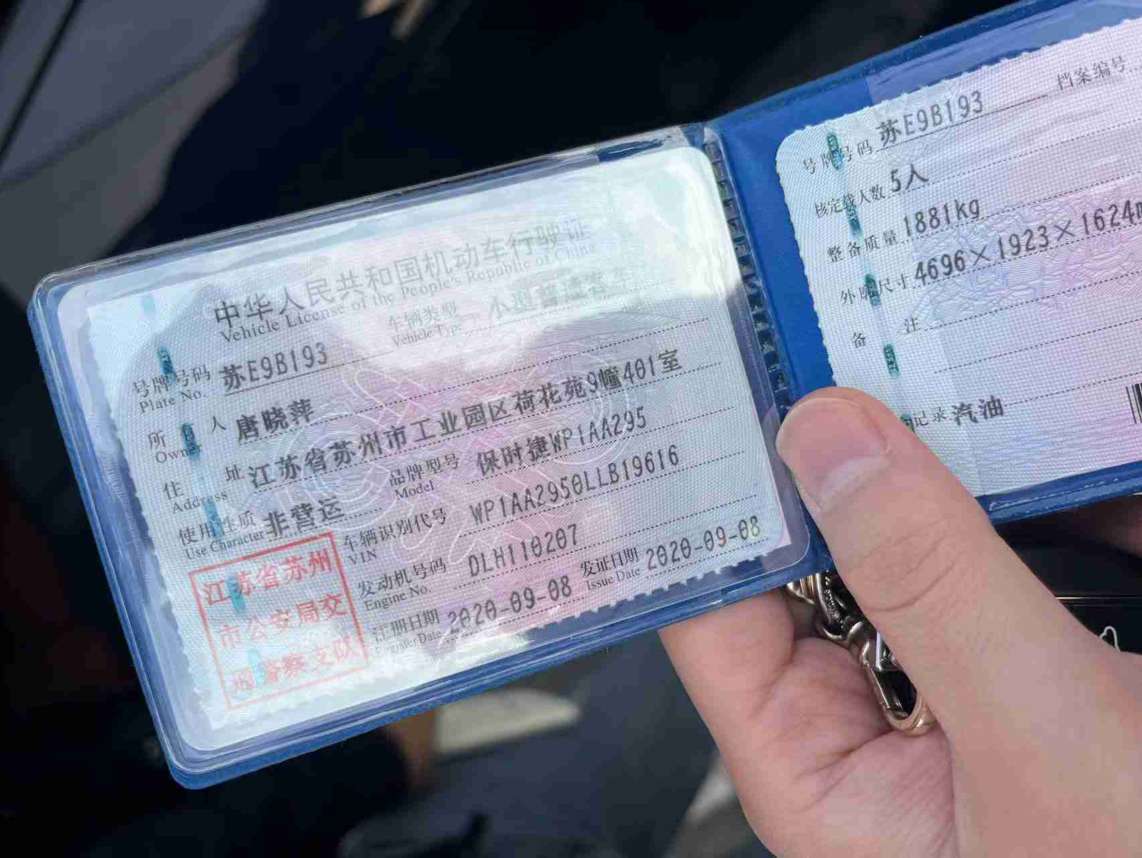 中华人民共和国机动车行驶证
Vehicle License of the People's Republic of China
号牌号码 苏E9B193 车辆类型
Plate No. Vehicle Type
所有人 唐晓萍
Owner
住址 江苏省苏州市工业园区荷花苑9幢401室
Address
使用性质 非营运 品牌型号 保时捷WP1AA295
Use Character Model
车辆识别代号 WP1AA2950LLB19616
VIN
发动机号码 DLH110207
Engine No.
注册日期 2020-09-08 发证日期 2020-09-08
Register Date Issue Date
江苏省苏州
市公安局交
警察支队
号牌号码 苏E9B193 档案编号
核定载人数 5人
整备质量 1881kg
外廓尺寸 4696×1923×1624m
备注
记录 汽油